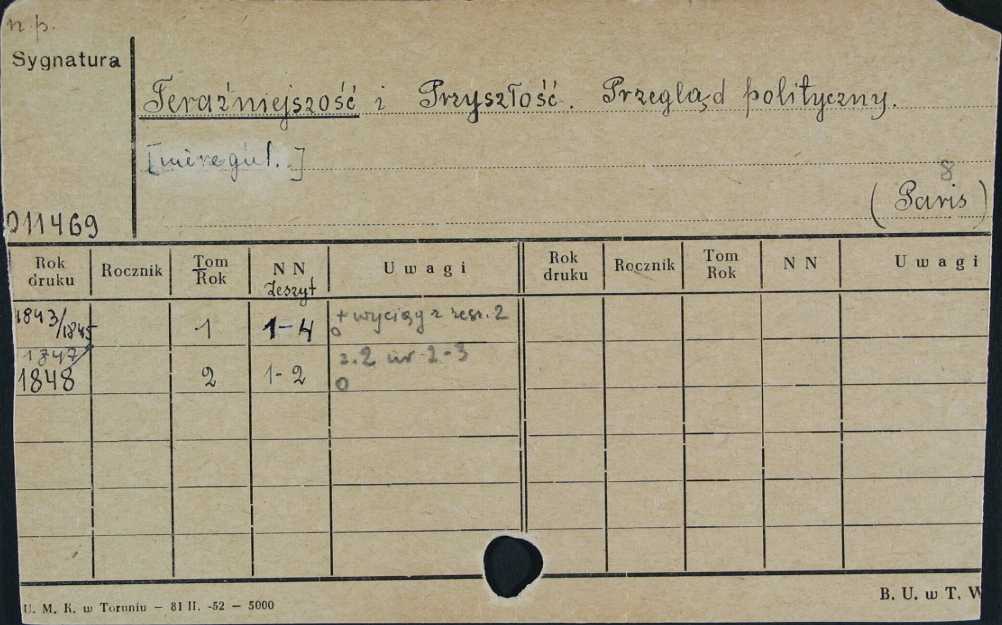 n.p.
Sygnatura
Teraźniejszość i Przyszłość. Przegląd polityczny.
[nieregul.]
8
(Paris)
011469
Rok druku Rocznik Tom Rok N N Zeszyt Uwagi Rok druku Rocznik Tom Rok N N Uwagi
1843/1845 1 1-4 + wyciąg z zesz. 2
0
1847/ z. 2 nr 2-3
1848 2 1-2 0
U. M. K. w Toruniu — 81 II. -52 — 5000
B. U. w T. W